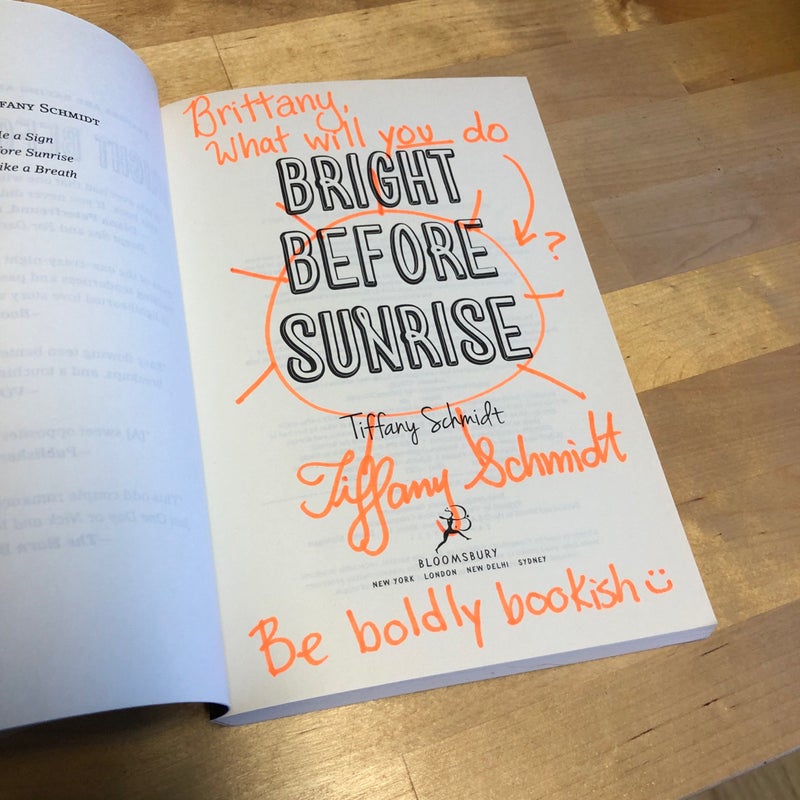 FFANY SCHMIDT
e a Sign
ore Sunrise
ike a Breath
Brittany,
What will you do
BRIGHT
BEFORE
?
SUNRISE
Tiffany Schmidt
Tiffany Schmidt
B
BLOOMSBURY
NEW YORK LONDON NEW DELHI SYDNEY
Be boldly bookish